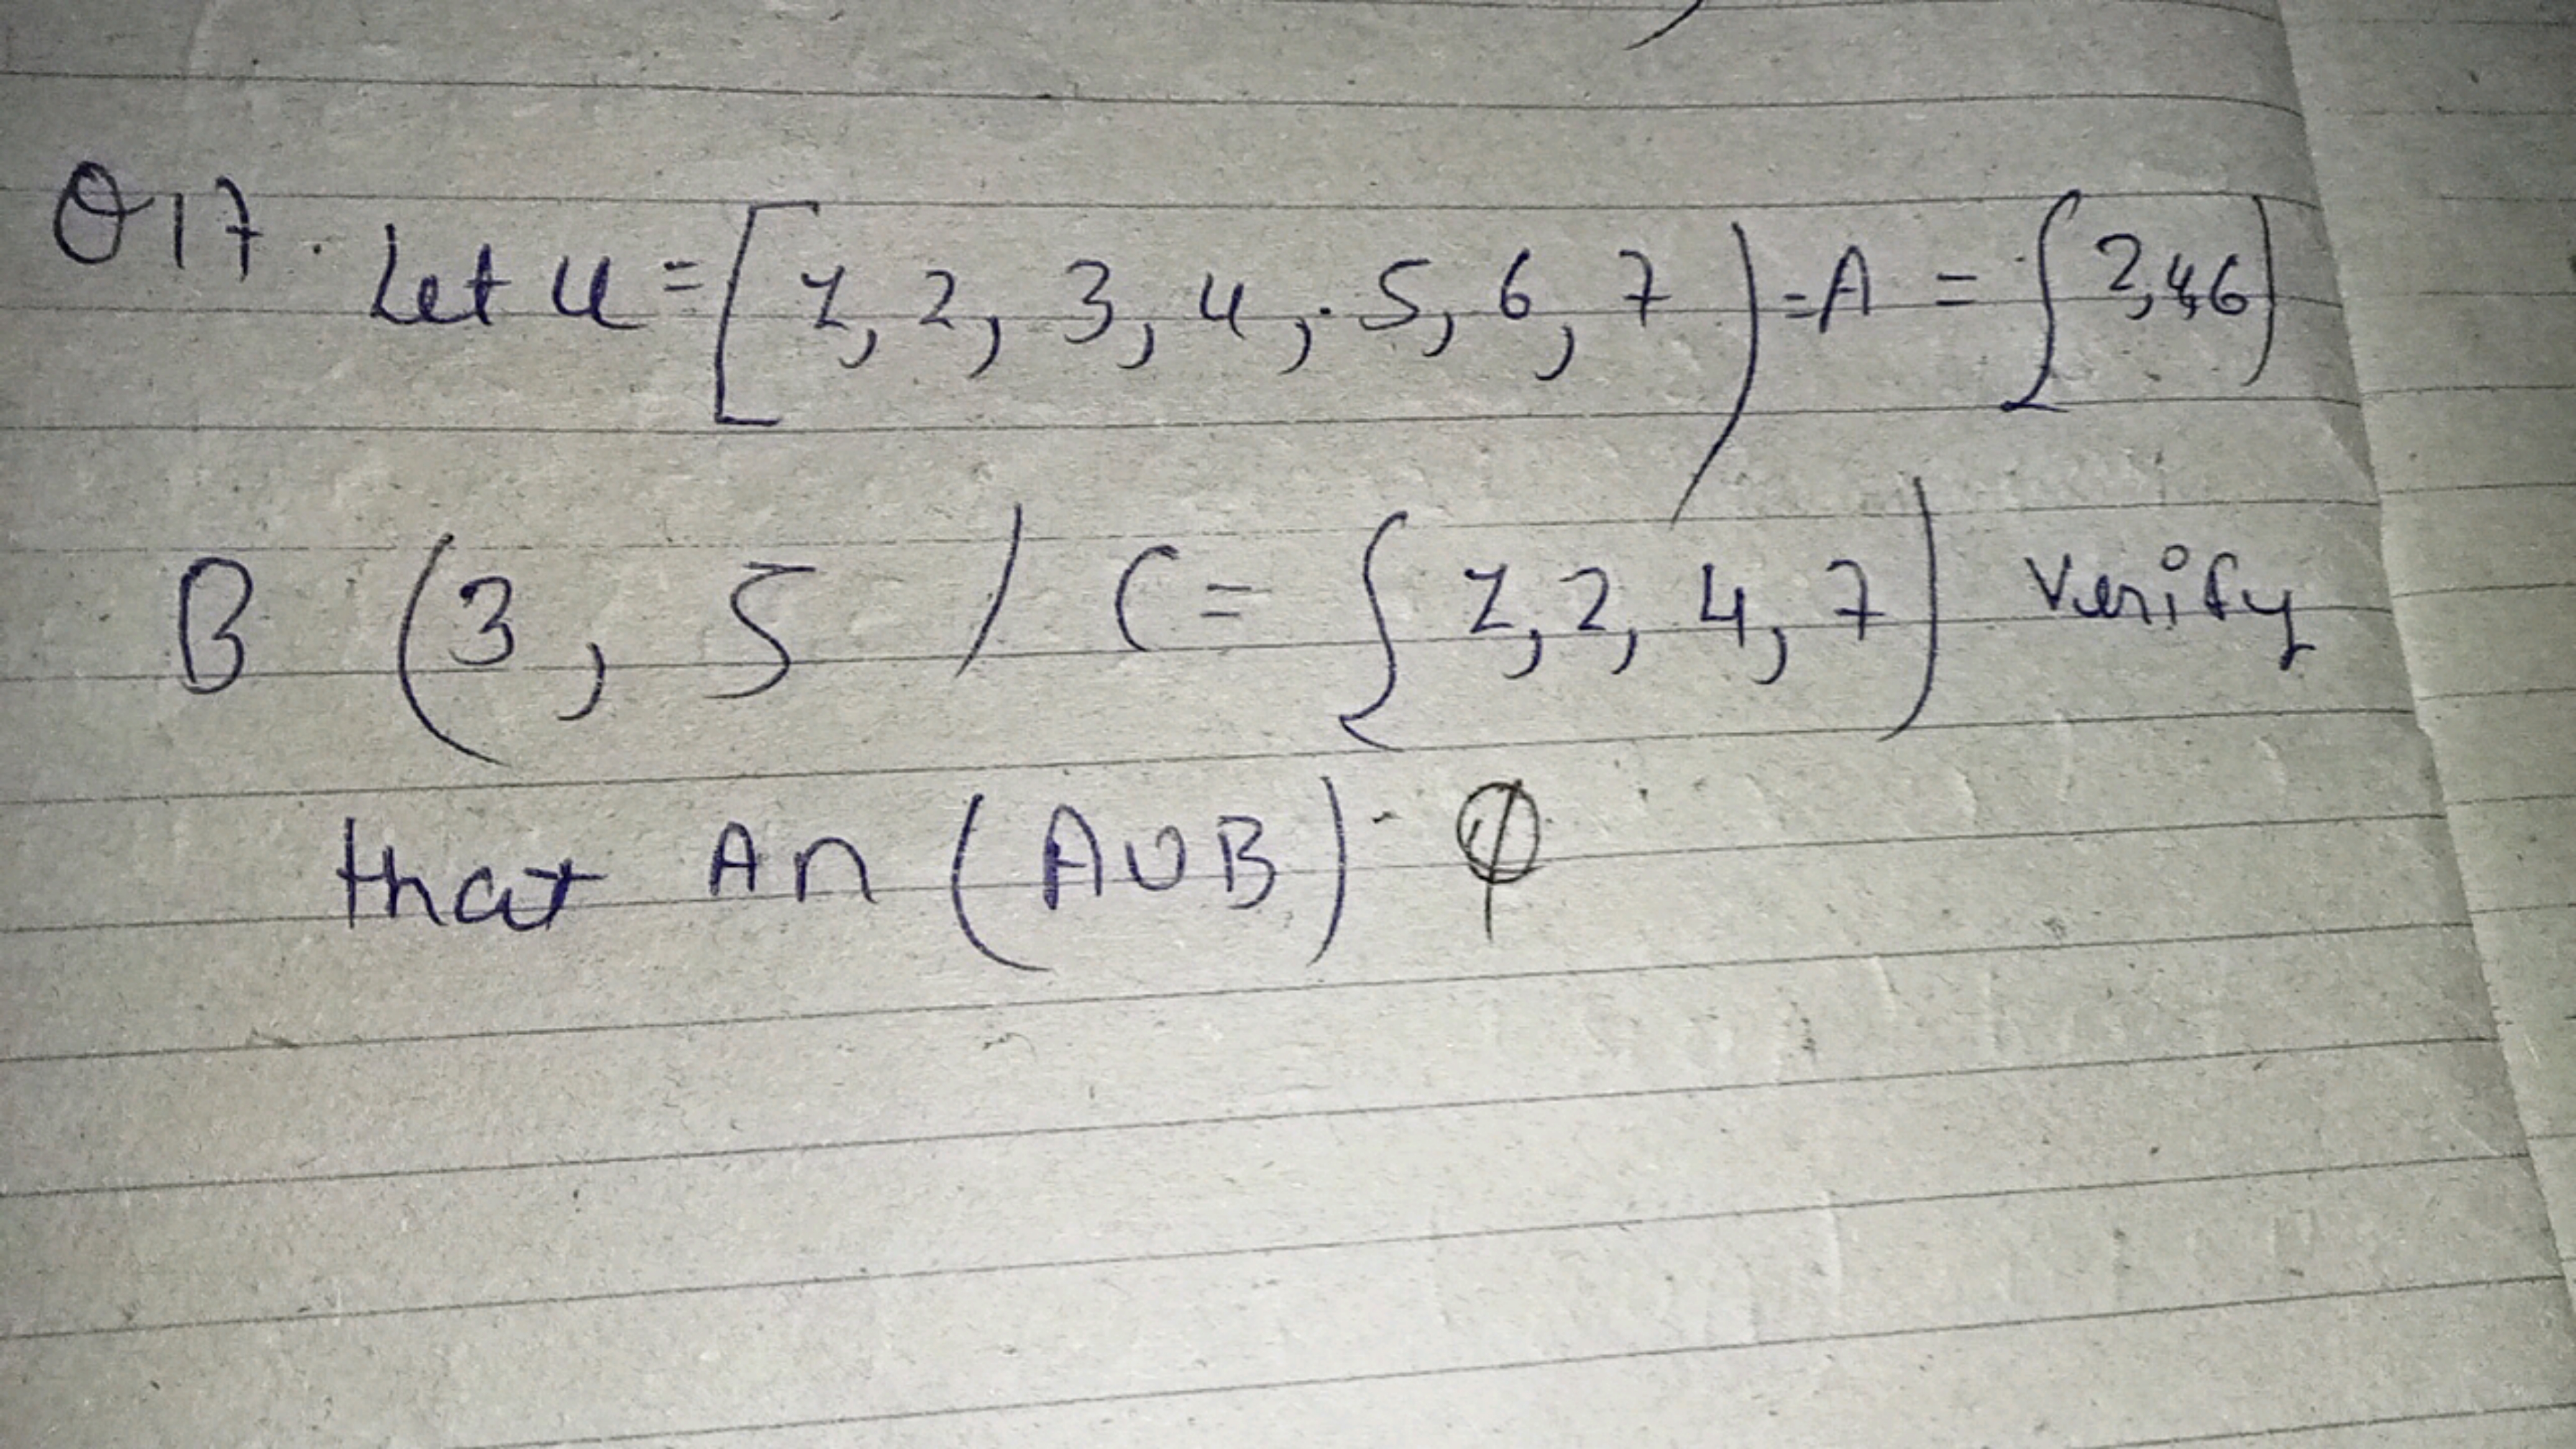 Q17. Let U = [1, 2, 3, 4, 5, 6, 7) = A = {2,4,6)
B (3, 5 ) C = {1,2, 4, 7) Verify
that A∩ (A∪B) - ϕ